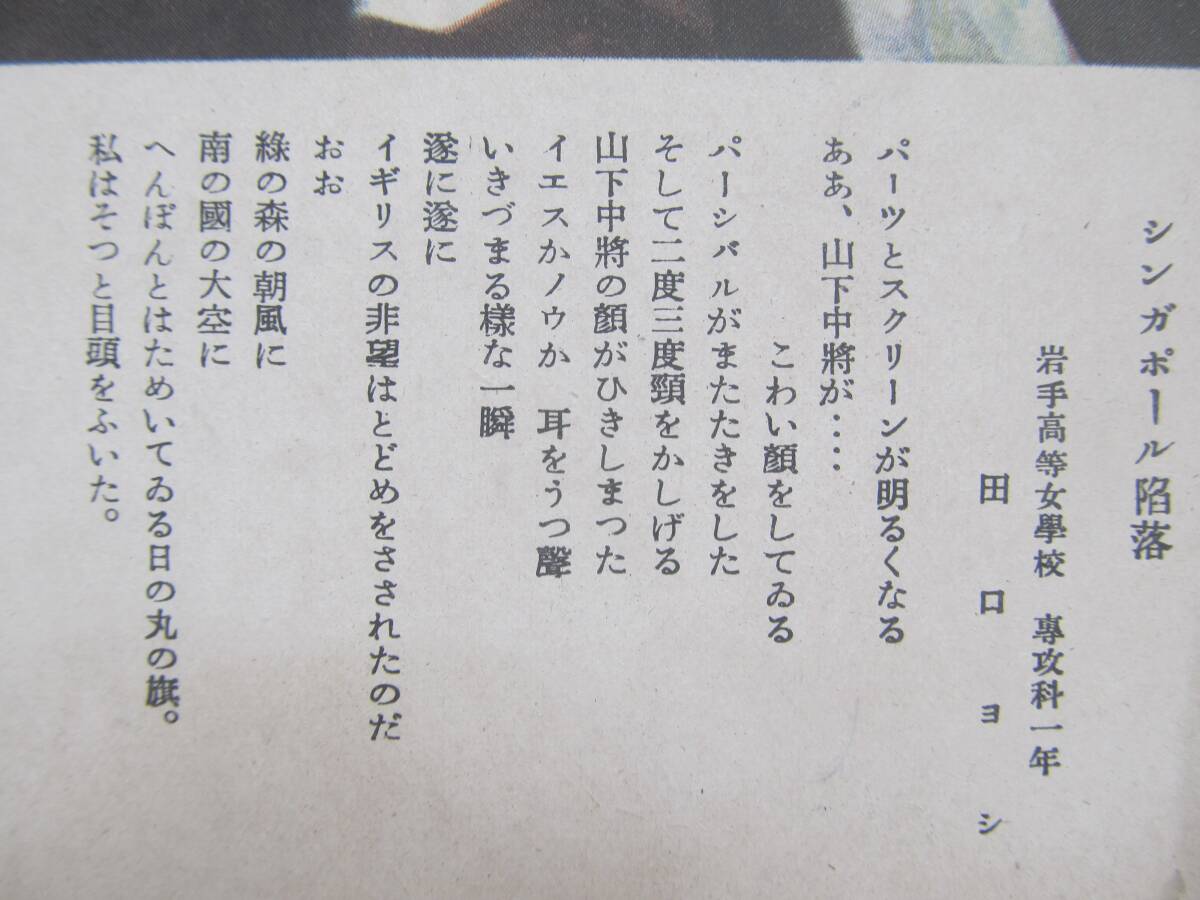 シンガポール陷落
岩手高等女學校 專攻科一年
田口ヨシ
パーツとスクリーンが明るくなる
ああ、山下中將が‥‥
こわい顏をしてゐる
パーシバルがまたたきをした
そして二度三度頸をかしげる
山下中將の顏がひきしまつた
イエスかノウか 耳をうつ聲
いきづまる樣な一瞬
遂に遂に
イギリスの非望はとどめをさされたのだ
おお
綠の森の朝風に
南の國の大空に
へんぽんとはためいてゐる日の丸の旗。
私はそつと目頭をふいた。